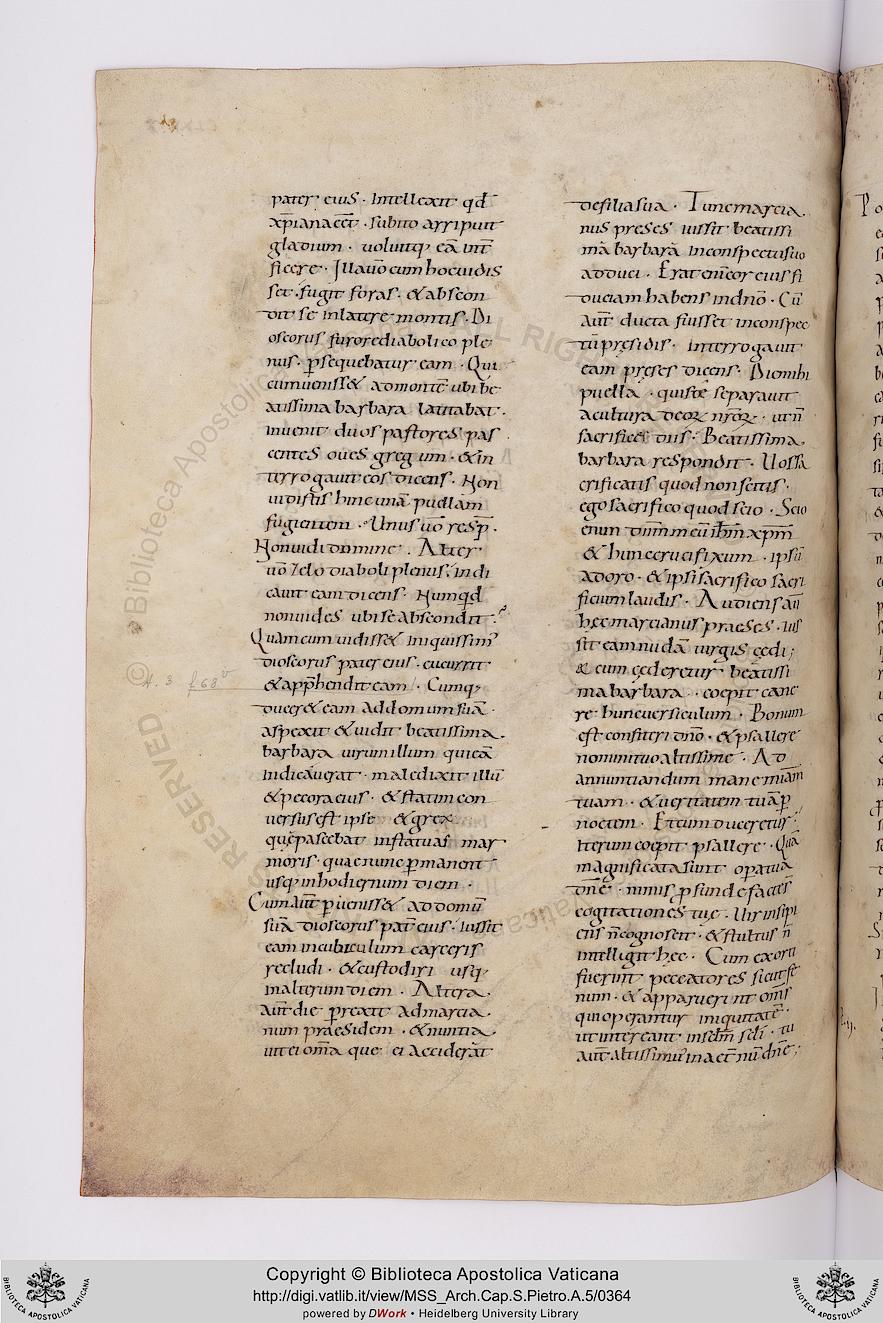 pater eius · Intellexit qđ
xp̄iana eēt · subito arripuit
gladium · uoluitq; eā int̄
ficere · Illa uō cum hoc uidis
set · fugit foras · & abscon
dit se in latere montis · Di
oscorus furore diabolico ple
nus · p̱sequebatur eam · Qui
cum uenisset ad montē ubi be
atissima barbara latitabat ·
inuenit duos pastores pas
centes oues gregum · & in
terrogauit eos dicens · Non
uidistis hinc unā puellam
fugientem · Unus uō resp̄ ·
Non uidi domine · Alter
uō zelo diaboli plenus · indi
cauit eam dicens · Numq̇d
non uides ubi se abscondit ·
Quam cum uidiss& iniquissim᾽
dioscorus pater eius · cucurrit
& app̄hendit eam · Cumq;
ducer& eam ad domum suā ·
aspexit & uidit beatissima
barbara uirum illum qui eā
indicauerat · maledixit illū
& pecora eius · & statim con
uersus est ipse & grex
quē pascebat in statuas mar
moris · quae nunc p̱manent
usq; in hodiernum diem ·
Cum aūt p̱uenisset ad domū
suā dioscorus pat̄ eius · iussit
eam in cubiculum carceris
recludi · & custodiri usq;
in alterum diem · Altera
aūt die p̱rexit ad marcia
num praesidem · & nuntia
uit ei om̄a que ei acciderāt
de filia sua · Tunc marcia
nus preses iussit beatissi
mā barbarā in conspectu suo
adduci · Erat enī cor eius fi
duciam habens in dn̄o · Cū
aūt ducta fuisset in conspec
tū pręsidis · interrogauit
eam pręses dicens · Dic mihi
puella · quis te separauit
a cultura deoꝝ nr̄oꝝ · ut n̄
sacrifices diis · Beatissima
barbara respondit · Uos sa
crificatis quod non scitis ·
ego sacrifico quod scio · Scio
enim dn̄m meū ih̄m xp̄m
& hunc crucifixum · ipsū
adoro · & ipsi sacrifico sacri
ficium laudis · Audiens aū
hęc marcianus praeses · ius
sit eam nudā uirgis cędi ;
& cum cęderetur beatissi
ma barbara · coepit cane
re hunc uersiculum · Bonum
est confiteri dn̄o · & psallere
nomini tuo altissime · Ad
annuntiandum mane miām
tuam · & ueritatem tuā p̱
noctem · Et cum duceretur
iterum coepit psallere · Quā
magnificata sunt opa tua
dn̄e · nimis p̱funde factę s̄
cogitationes tuę · Uir insipi
ens n̄ cognoscit · & stultus n̄
intelligit hęc · Cum exorti
fuerint peccatores sicut fe
num · & apparuerint om̄s
qui operantur iniquitatē ·
ut intereant in sc̄lm sc̄li · tu
aūt altissimus in aet̄nū dn̄e ;
A. 3 f 68ᵛ
© Biblioteca Apostolica Vaticana ALL RIGHTS RESERVED
Copyright © Biblioteca Apostolica Vaticana
http://digi.vatlib.it/view/MSS_Arch.Cap.S.Pietro.A.5/0364
powered by DWork • Heidelberg University Library
BIBLIOTECA APOSTOLICA VATICANA
BIBLIOTECA APOSTOLICA VATICANA